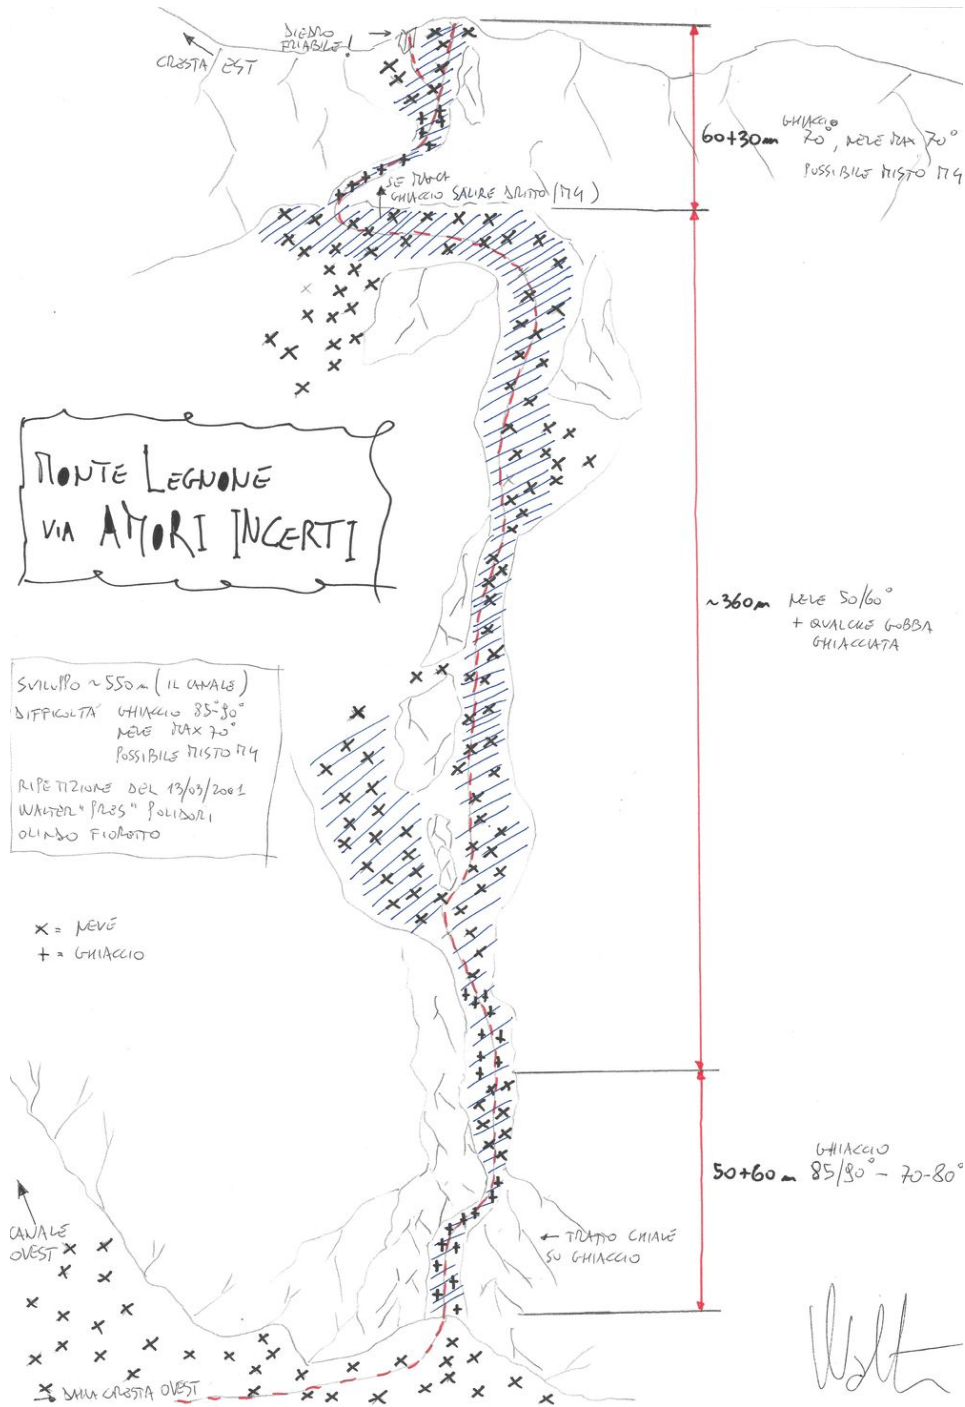 DIEDRO
FRIABILE!
CRESTA EST
60+30m GHIACCIO 70°, NEVE MAX 70°
POSSIBILE MISTO M4
SE MANCA
GHIACCIO SALIRE DRITTO (M4)
MONTE LEGNONE
VIA AMORI INCERTI
~360m NEVE 50/60°
+ QUALCHE GOBBA
GHIACCIATA
SVILUPPO ~550m (IL CANALE)
DIFFICOLTÀ GHIACCIO 85°-90°
NEVE MAX 70°
POSSIBILE MISTO M4
RIPETIZIONE DEL 13/03/2001
WALTER "PRES" POLIDORI
OLINDO FIOROTTO
x = NEVE
+ = GHIACCIO
50+60m GHIACCIO 85/90° - 70-80°
CANALE
OVEST
← TRATTO CHIAVE
SU GHIACCIO
→ DALLA CRESTA OVEST